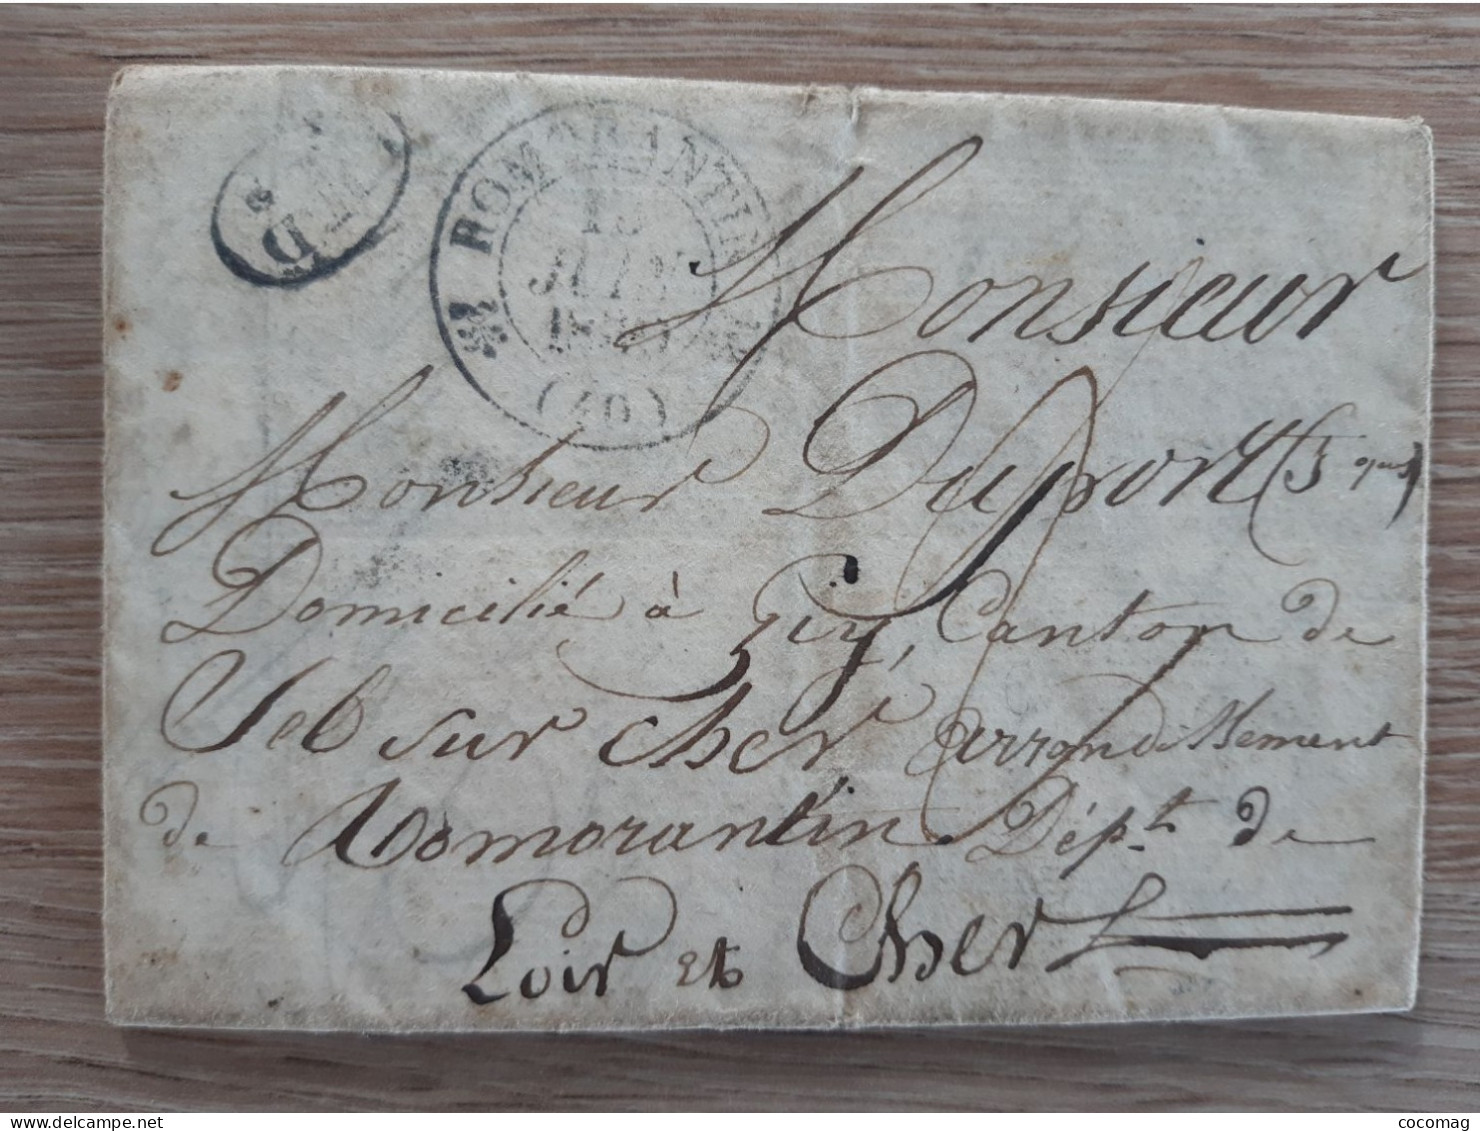 ROMORANTIN
JUIN
(40)
Monsieur
Monsieur Duport
Domicilié à Giy, Canton de
Sel sur Cher arrondissement
de Romorantin Dépt. de
Loir et Cher
cocomag